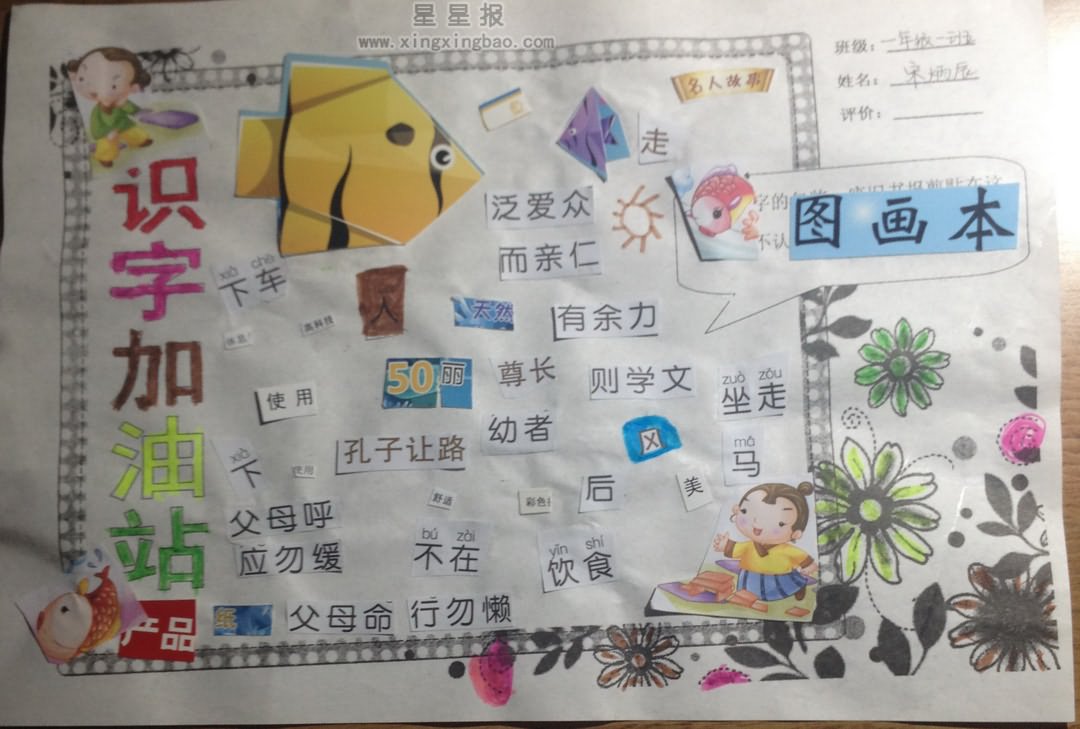 星星报
www.xingxingbao.com
班级:一年级一班
姓名:宋炳辰
评价:
识字加油站
名人故事
走
图画本
字的
不认
泛爱众
而亲仁
xià chē
下车
人
天然
有余力
高科技
50
丽
尊长
则学文
zuò zǒu
坐走
使用
幼者
X
孔子让路
xià
下
mǎ
马
使用
舒适
彩色
后
美
父母呼
应勿缓
bú zài
不在
yǐn shí
饮食
产品
父母命
行勿懒